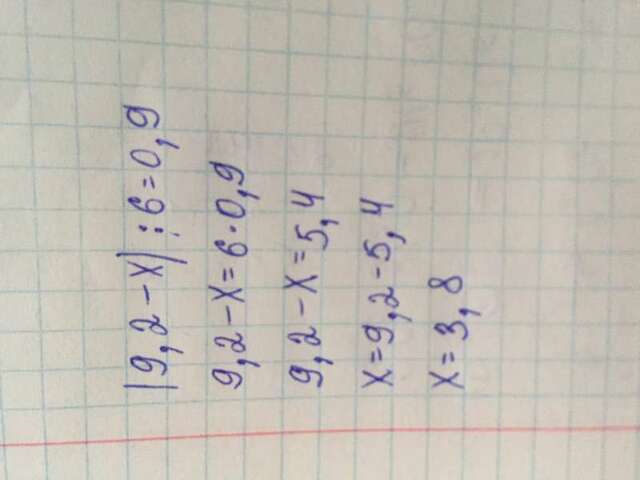 |9,2-x| : 6=0,9
9,2-x=6·0,9
9,2-x=5,4
x=9,2-5,4
x=3,8